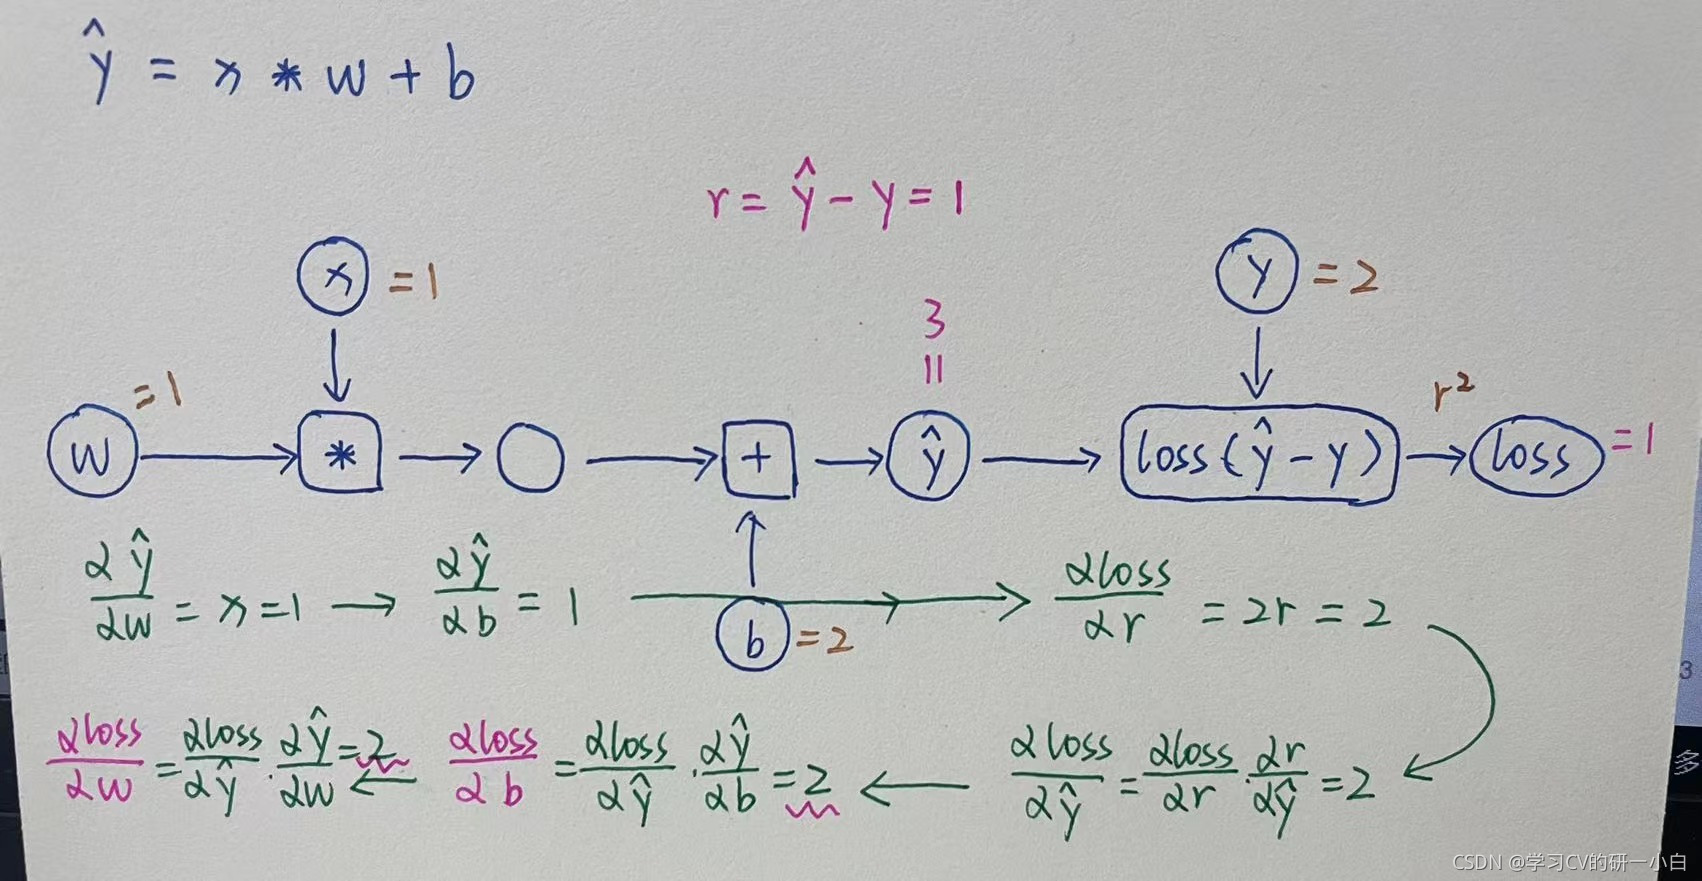 ŷ = x * w + b
r = ŷ - y = 1
x = 1
y = 2
3
||
w = 1
*
+
ŷ
loss(ŷ - y)
r²
loss = 1
∂ŷ/∂w = x = 1 → ∂ŷ/∂b = 1 → ∂loss/∂r = 2r = 2
b = 2
∂loss/∂w = ∂loss/∂ŷ · ∂ŷ/∂w = 2 ← ∂loss/∂b = ∂loss/∂ŷ · ∂ŷ/∂b = 2 ← ∂loss/∂ŷ = ∂loss/∂r · ∂r/∂ŷ = 2
3
多
CSDN @学习CV的研一小白